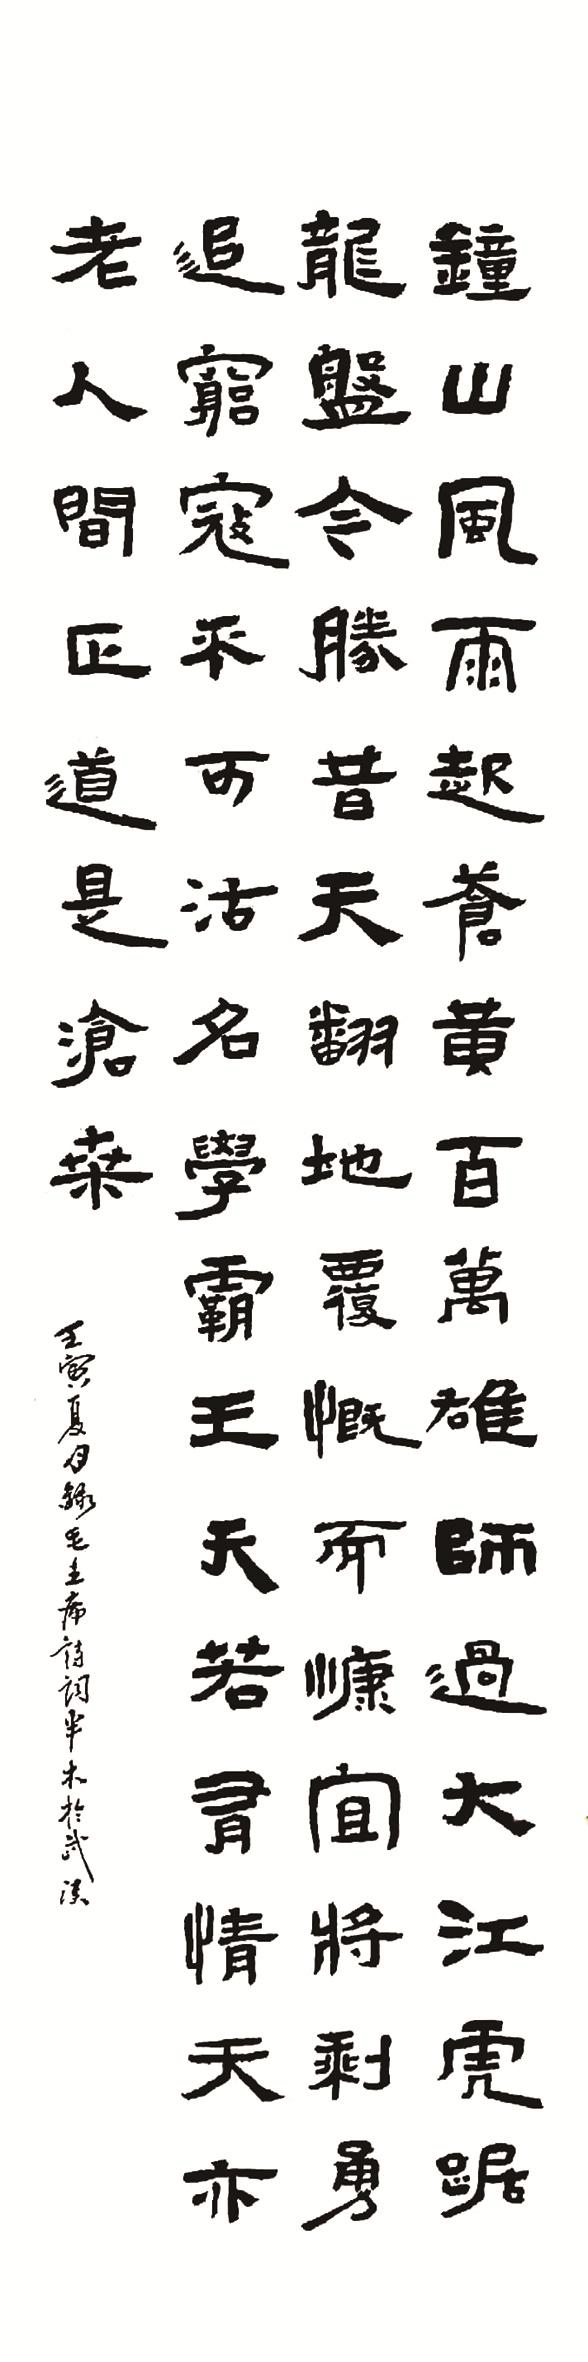 鐘山風雨起蒼黄百萬雄師過大江虎踞
龍盤今勝昔天翻地覆慨而慷宜將剩勇
追窮寇不可沽名學霸王天若有情天亦
老人間正道是滄桑
壬寅夏月錄毛主席詩詞半木於武漢